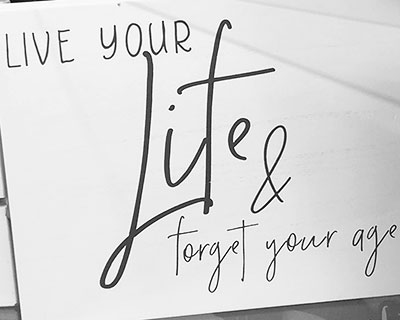 LIVE YOUR
Life
&
forget your age